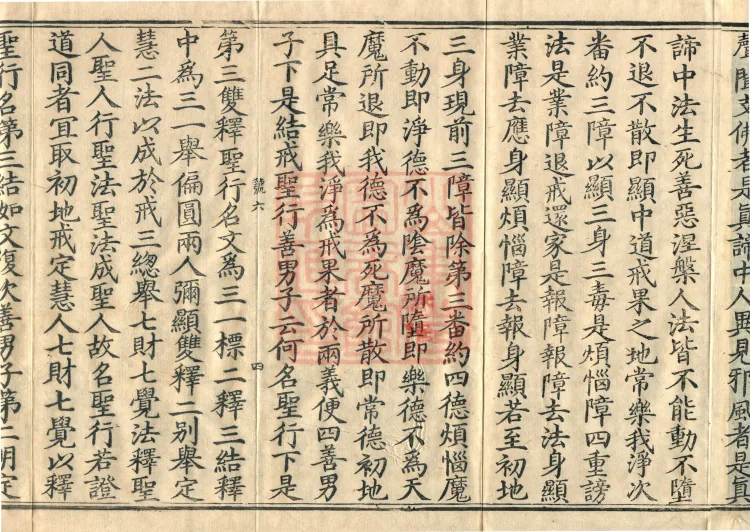 聲聞支佛者是眞諦中人異見邪風者是眞
諦中法生死善惡涅槃人法皆不能動不墮
不退不散即顯中道戒果之地常樂我淨次
番約三障以顯三身三毒是煩惱障四重謗
法是業障退戒還家是報障報障去法身顯
業障去應身顯煩惱障去報身顯若至初地
三身現前三障皆除第三番約四德煩惱魔
不動即淨德不為陰魔所墮即樂德不為天
魔所退即我德不為死魔所散即常德初地
具足常樂我淨為戒果者於兩義便四善男
子下是結戒聖行善男子云何名聖行下是
號六
四
第三雙釋聖行名文為三一標二釋三結釋
中為三一舉偏圓兩人彌顯雙釋二别舉定
慧二法以成於戒三緫舉七財七覺法釋聖
人聖人行聖法聖法成聖人故名聖行若證
道同者冝取初地戒定慧人七財七覺以釋
聖行名第三結如文復次善男子第二明定